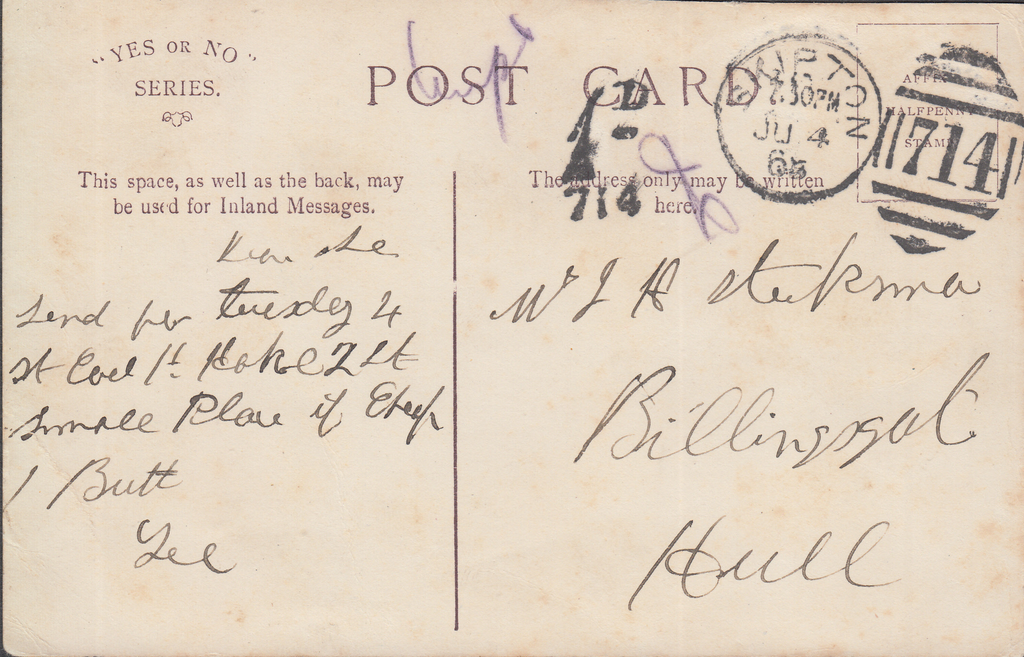 "YES OR NO"
SERIES.
POST CARD
AFFIX
HALFPENNY
STAMP
SHIPTON
7.30PM
JU 4
714
1D
714
This space, as well as the back, may
be used for Inland Messages.
The address only may be written
here.
Send per tuesday 4
st Cod 1 st Hake 2 st
small Plaice if Cheap
1 Butt
Lee
Mr J H
Billingsgate
Hull